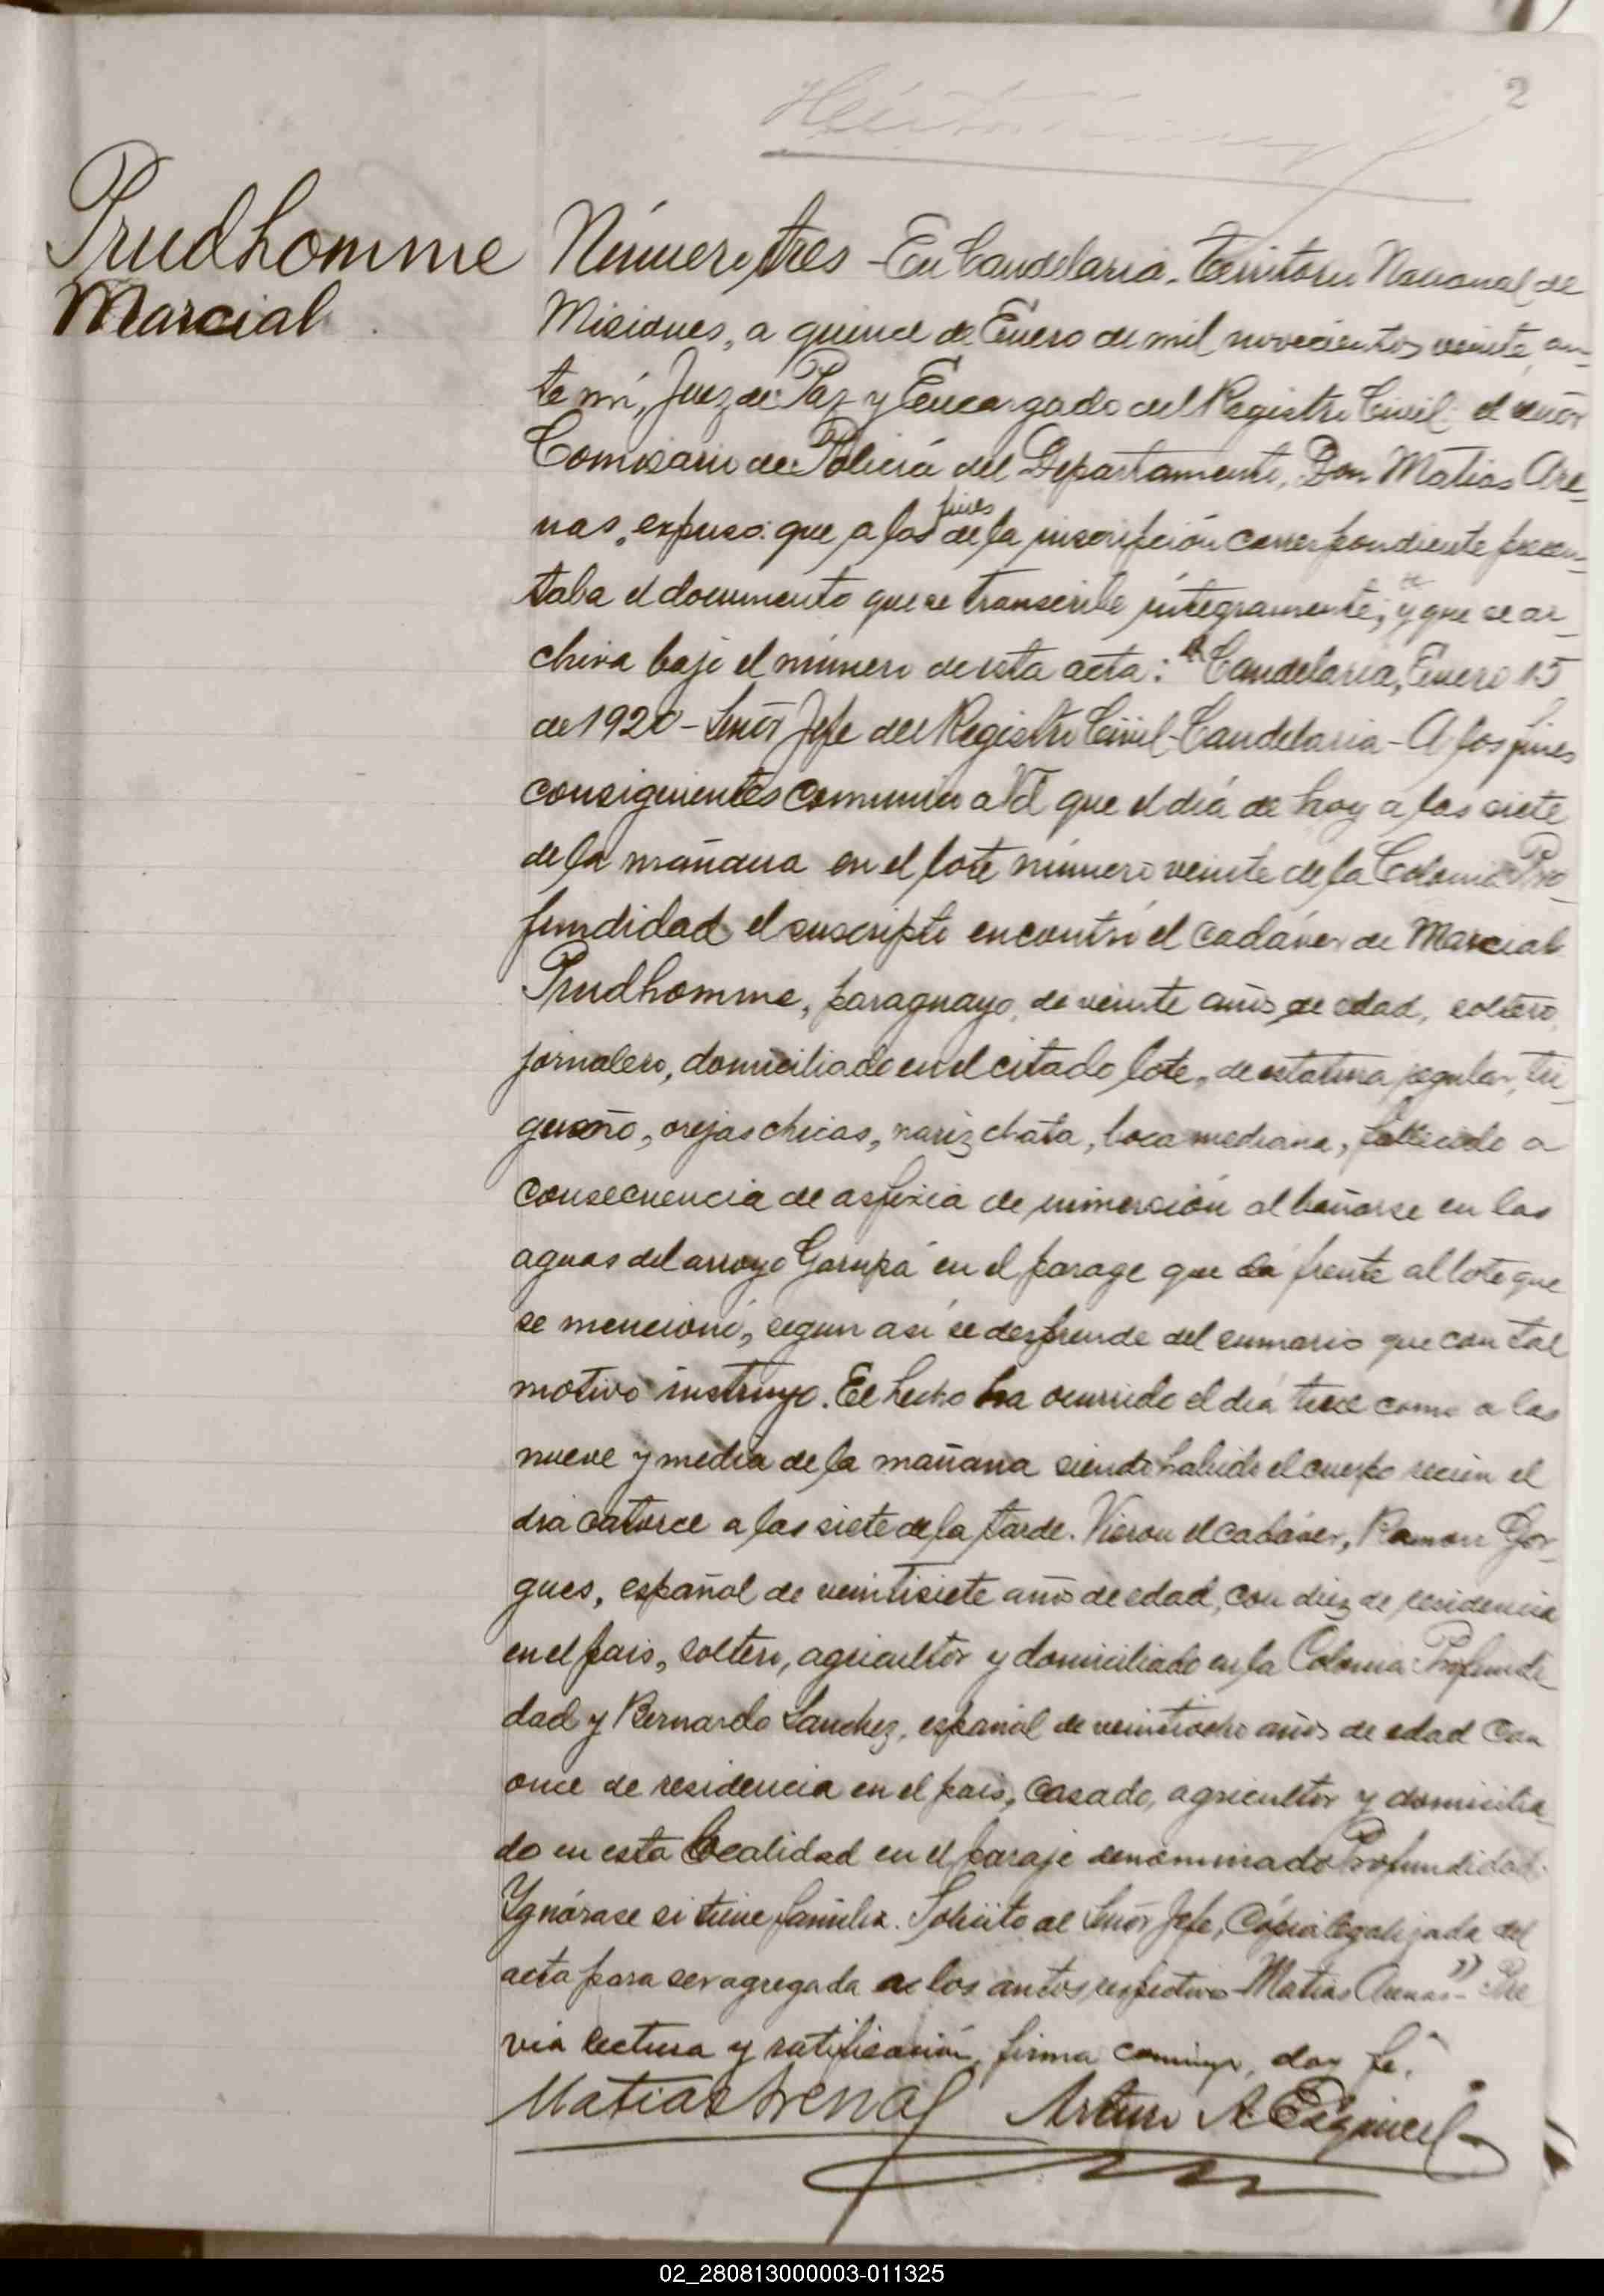 2
Prudhomme
Marcial
Número tres - En Candelaria, Territorio Nacional de
Misiones, a quince de Enero de mil novecientos veinte, an-
te mí, Juez de Paz y Encargado del Registro Civil el señor
Comisario de Policia del Departamento, Don Matias Are-
nas, expuso: que a los fines de la inscripción correspondiente presen-
taba el documento que se transcribe íntegramente, y que se ar-
chiva bajo el número de esta acta: "Candelaria, Enero 15
de 1920 - Señor Jefe del Registro Civil - Candelaria - A los fines
consiguientes comunico a Vd que el día de hoy a las siete
de la mañana en el lote número veinte de la Colonia Pro-
fundidad el suscripto encontró el cadáver de Marcial
Prudhomme, paraguayo, de veinte años de edad, soltero,
jornalero, domiciliado en el citado lote, de estatura regular, tri-
gueño, orejas chicas, nariz chata, boca mediana, fallecido a
consecuencia de asfixia de inmersión al bañarse en las
aguas del arroyo Garupá en el parage que da frente al lote que
se mencionó, segun así se desprende del sumario que con tal
motivo instruyo. El hecho ha ocurrido el día trece como a las
nueve y media de la mañana siendo habido el cuerpo recien el
dia catorce a las siete de la tarde. Vieron el cadáver, Ramon Gor-
gues, español de veintisiete años de edad, con diez de residencia
en el pais, soltero, agricultor y domiciliado en la Colonia Profundi
dad y Bernardo Sanchez, español de veintiocho años de edad con
once de residencia en el pais, casado, agricultor y domicilia-
do en esta localidad en el paraje denominado Profundidad.
Ygnórase si tiene familia. Solicito al Señor Jefe, cópia legalizada del
acta para ser agregada a los autos respectivos - Matias Arenas" - Pre
via lectura y ratificación, firma conmigo, doy fé.
Matias Arenas Arturo A.
02_280813000003-011325